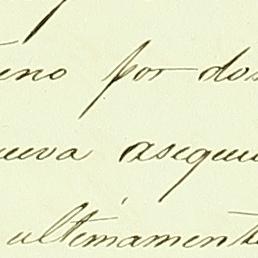 ino por dos
ueva asegu
ultimamente